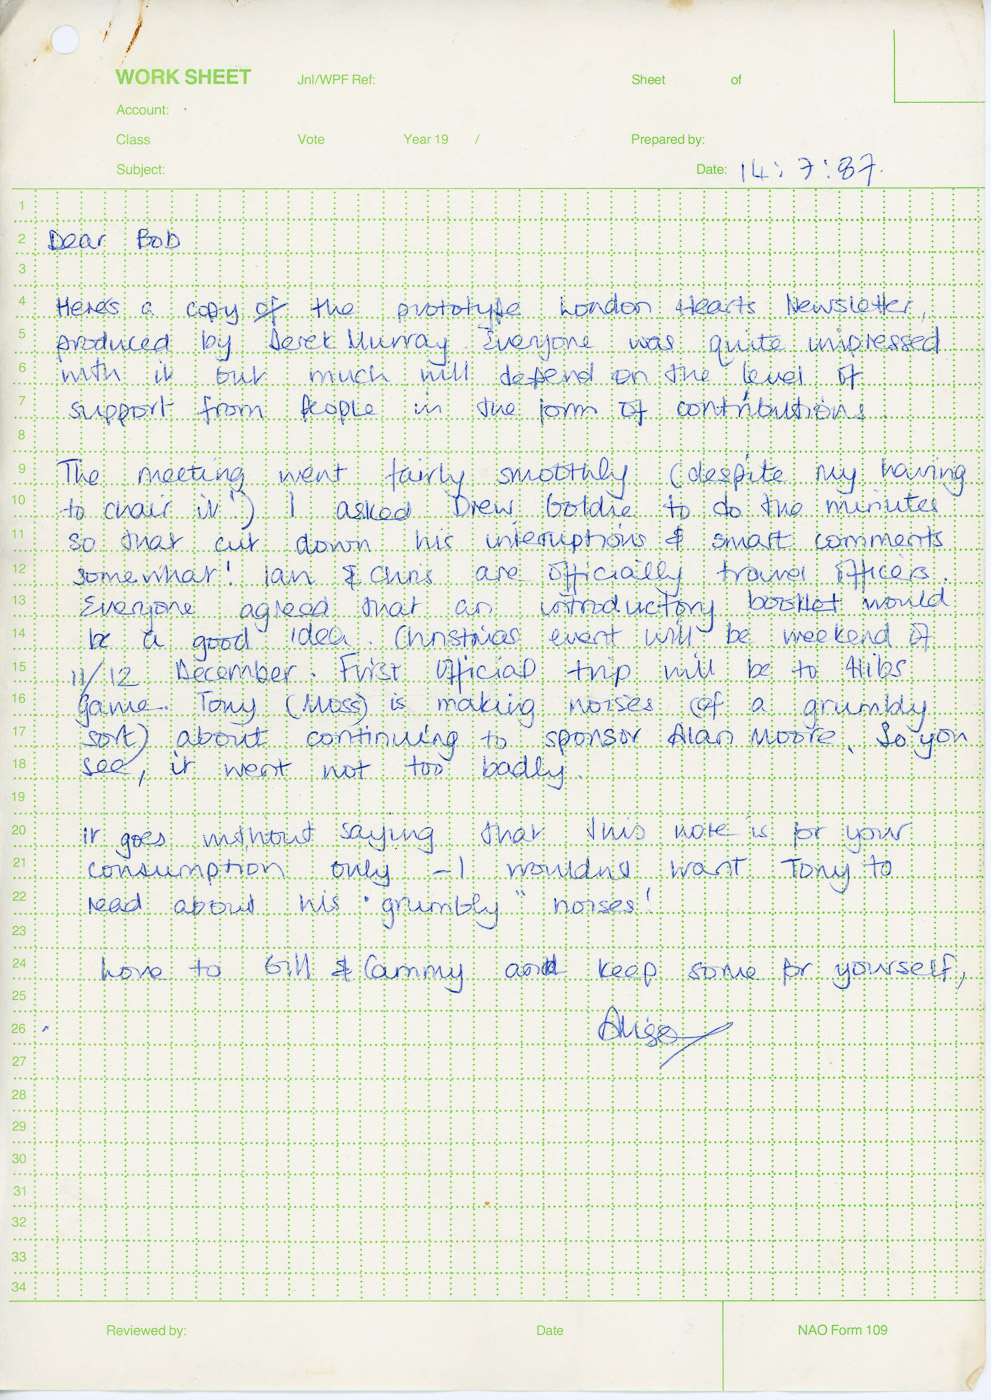 WORK SHEET Jnl/WPF Ref: Sheet of
Account:
Class Vote Year 19 / Prepared by:
Subject: Date: 14:7:87.
1
2 Dear Bob
3
4 Here's a copy of the prototype London Hearts Newsletter,
5 produced by Derek Murray. Everyone was quite impressed
6 with it but much will depend on the level of
7 support from people in the form of contributions.
8
9 The meeting went fairly smoothly (despite my having
10 to chair it!) I asked Drew Goldie to do the minutes
11 so that cut down his interruptions & smart comments
12 somewhat! Ian & Chris are officially travel officers.
13 Everyone agreed that an introductory booklet would
14 be a good idea. Christmas event will be weekend of
15 11/12 December. First official trip will be to Hibs
16 game. Tony (Moss) is making noises (of a grumbly
17 sort) about continuing to sponsor Alan Moore. So you
18 see, it went not too badly.
19
20 It goes without saying that this note is for your
21 consumption only - I wouldn't want Tony to
22 read about his "grumbly" noises!
23
24 Love to Gill & Cammy and keep some for yourself,
25
26 Aliso
27
28
29
30
31
32
33
34
Reviewed by: Date NAO Form 109